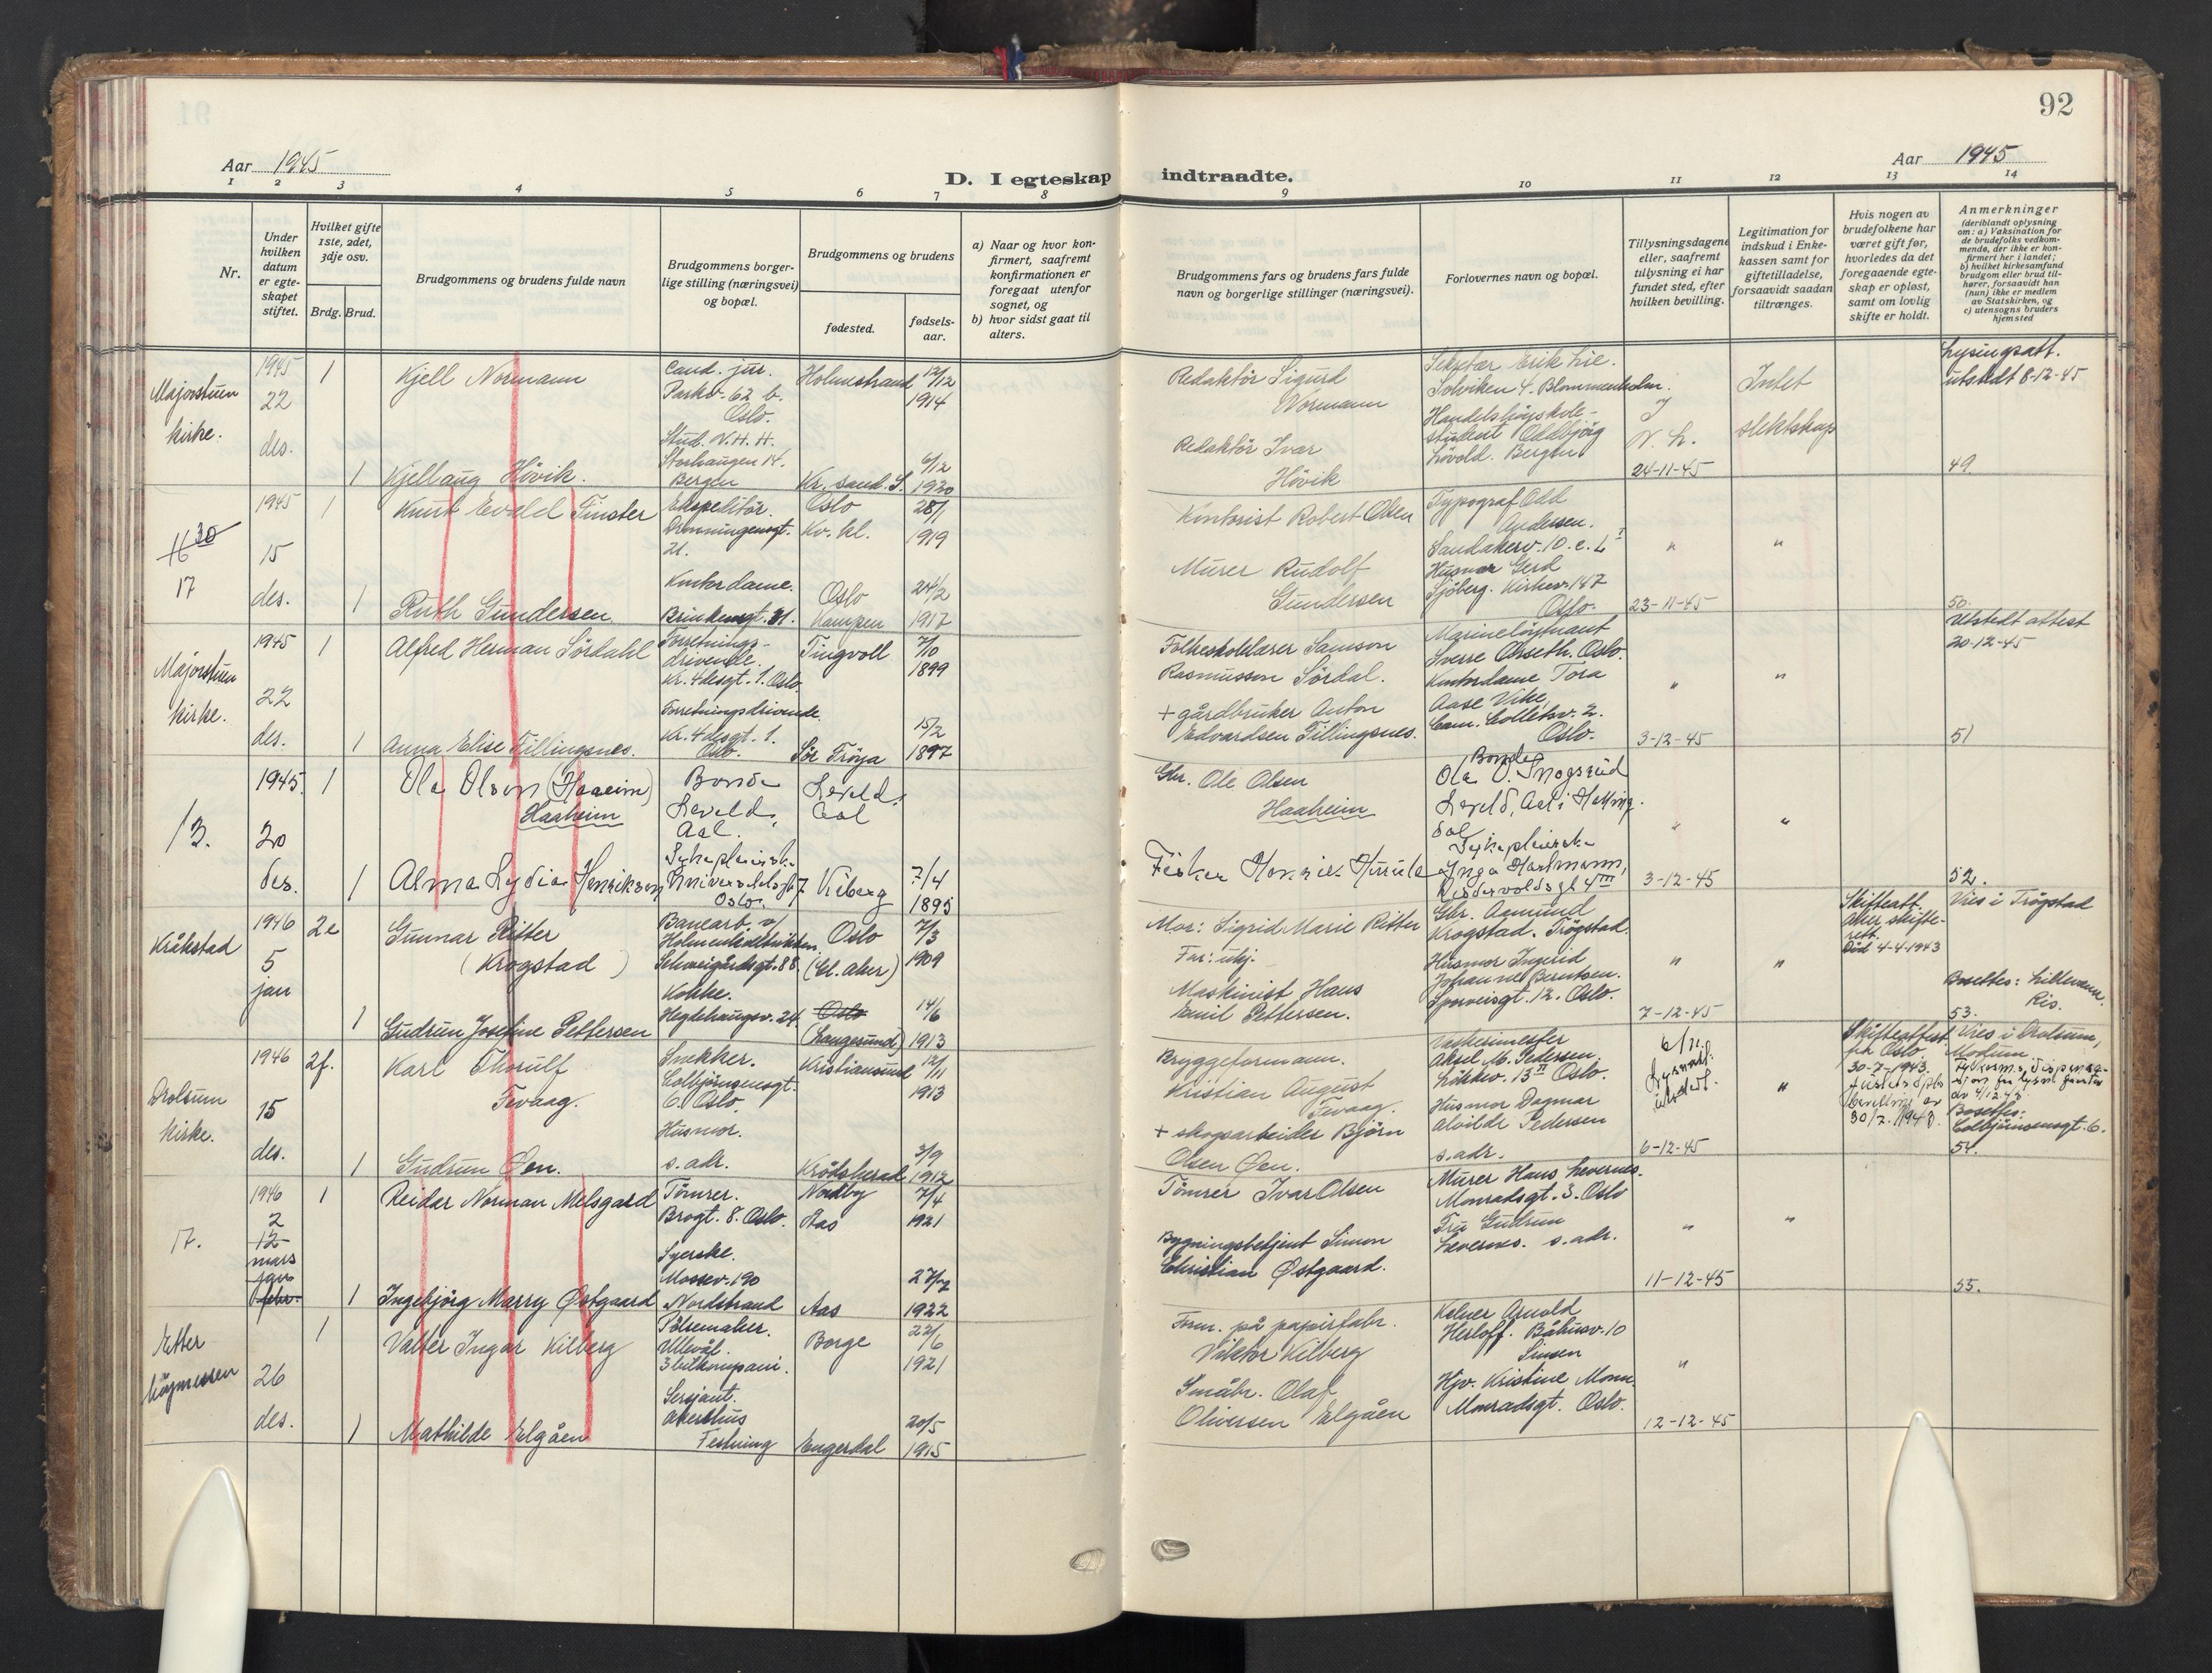 91
92
Aar 1945
D. I egteskap
indtraadte.
Aar 1945
1 2 3 4 5 6 7 8 9 10 11 12 13 14
Nr.
Under
hvilken
datum
er egte-
skapet
stiftet.
Hvilket gifte
1ste, 2det,
3dje osv.
Brdg.
Brud.
Brudgommens og brudens fulde navn
Brudgommens borger-
lige stilling (næringsvei)
og bopæl.
Brudgommens og brudens
fødested.
fødsels-
aar.
a) Naar og hvor kon-
firmert, saafremt
konfirmationen er
foregaat utenfor
sognet, og
b) hvor sidst gaat til
alters.
Brudgommens fars og brudens fars fulde
navn og borgerlige stillinger (næringsvei).
Forlovernes navn og bopæl.
Tillysningsdagene
eller, saafremt
tillysning ei har
fundet sted, efter
hvilken bevilling.
Legitimation for
indskud i Enke-
kassen samt for
giftetilladelse,
forsaavidt saadan
tiltrænges.
Hvis nogen av
brudefolkene har
været gift før,
hvorledes da det
foregaaende egte-
skap er opløst,
samt om lovlig
skifte er holdt.
Anmerkninger
(deriblandt oplysning
om: a) Vaksination for
de brudefolks vedkom-
mende, der ikke er kon-
firmert her i landet;
b) hvilket kirkesamfund
brudgom eller brud til-
hører, forsaavidt han
(hun) ikke er medlem
av Statskirken, og
c) utensogns bruders
hjemsted
Majorstuen
kirke.
1945
22
des.
1
Kjell Normann
Cand. jur.
Parkv. 62 b.
Oslo.
Holmestrand
12/12
1914
Redaktör Sigurd
Normann
Sekretær Erik Lie.
Solviken 4. Blommenholm.
Intet
slektskap
Lysingsatt.
utstedt 8-12-45
1
Kjellaug Hövik.
Stud. N.H.H.
Storhaugen 14.
Bergen
Kr. sand. S.
6/12
1920
Redaktör Ivar
Hövik
Handelshöyskole-
student Oddbjörg
Lövold. Bergen
N. L.
24-11-45
49.
11 30
17
1945
15
des.
1
Knut Evald Finster
Ekspeditör.
Dronningensgt.
21.
Oslo
Kv. kl.
28/1
1919
Kontorist Robert Olsen
Typograf Odd
Andersen.
Sandakerv. 10. e. L
"
"
1
Ruth Gundersen
Kontordame.
Brinkensgt. 31.
Oslo
Kampen
24/2
1917
Murer Rudolf
Gundersen
Husmor Gerd
Sjöberg. Kirkev. 147
Oslo.
23-11-45
50.
Majorstuen
kirke.
1945
22
des.
1
Alfred Herman Sördahl
Forretnings-
drivende.
Kr. 4desgt. 1. Oslo.
Tingvoll
7/10
1899
Folkeskolelærer Samson
Rasmussen Sördal.
Marinelöytnant
Sverre Ohrseth. Oslo.
"
"
Utstedt attest
20-12-45
1
Anna Elise Fillingsnes.
Forretningsdrivende.
Kr. 4desgt. 1.
Oslo.
Sör Fröya
15/2
1897
+ gårdbruker Anton
Edvardsen Fillingsnes.
Kontordame Tora
Aase Vike,
Cam. Colletsv. 2.
Oslo.
3-12-45
51
13.
1945.
20
des.
1
Ola Olsen (Haaeim)
Haaheim
Bonde
Leveld,
Aal.
Leveld.
Aal
Gbr. Ole Olsen
Haaheim
Bonde
Ola O. Snogsrud
Leveld, Aal i Halling-
dal
"
"
1
Alma Lydia Henriksen
Sykepleierske
Universitetsgt 7
Oslo.
Kiberg
7/4
1895
Fisker
Sykepleierske
Inga Hartmann,
3-12-45
52.
Kråkstad
1946
5
jan
2e
Gunnar Ritter
(Krogstad)
Banearb. v/
Holmenkolbanen
Schweigårdsgt. 88
Oslo
(Gl. Aker)
7/3
1909
Mor: Sigrid Marie Ritter
Far: ukj.
Gbr. Aamund
Krogstad. Trögstad.
"
"
Skifteatt.
Aker skifte-
rett.
Död 4-4-1943
Vies i Trögstad
1
Gudrun Josefine Pettersen
Kokke.
Hegdehaugsv. 24.
Oslo
(Langesund)
14/6
1913
Maskinist Hans
Emil Pettersen.
Husmor Ingrid
Johanne Berntsen.
Sporveisgt. 12. Oslo.
7-12-45
Bosettes: Lillevann.
Ris.
53.
Drolsum
kirke.
1946
15
des.
2f.
Karl Thorulf
Tevaag.
Snekker.
Colbjörnsensgt.
6. Oslo.
Kristiansund
12/11
1913
Bryggeformann.
Kristian August
Tevaag.
Aksel M. Pedersen.
Lökkev. 13 II Oslo.
6/11.
"
Skifteattest
fra Oslo
30-7-1943.
30/7. 1943.
Vies i Drolsum,
Modum
Bosettes:
Colbjörnsensgt. 6.
1
Gudrun Øen.
Husmor.
s. adr.
Krödsherad
3/9
1912
+ skogsarbeider Björn
Olsen Øen.
Husmor Dagmar
Alvilde Pedersen
s. adr.
6-12-45
54.
17.
1946
2
12
mars
jan
febr.
1
Reidar Norman Melsgard
Tömrer.
Brogt. 8. Oslo.
Nordby
Aas
7/4
1921
Tömrer Ivar Olsen
Murer Hans Levernes.
Monradsgt. 3. Oslo
"
"
1
Ingebjörg Marry Østgaard
Syerske.
Mossev. 190
Nordstrand
Aas
27/7
1922
Bygningsbetjent Simon
Christian Østgaard.
Fru Gudrun
Levernes. s. adr.
11-12-45
55.
Etter
höymessen
26
des.
1
Valter Ingar Kilberg
Pölsemaker.
Ullevål.
Borge
22/6
1921
Form. på papirfabr.
Viktor Kilberg
Kelner Arnold
Herloff. Båhusv. 10
Sinsen
"
1
Mathilde Elgåen
Sersjant.
Akershus
Festning
Engerdal
20/5
1915
Småbr. Olaf
Oliversen Elgåen
Hjv. Kristine Monn.
Monradsgt. Oslo.
12-12-45